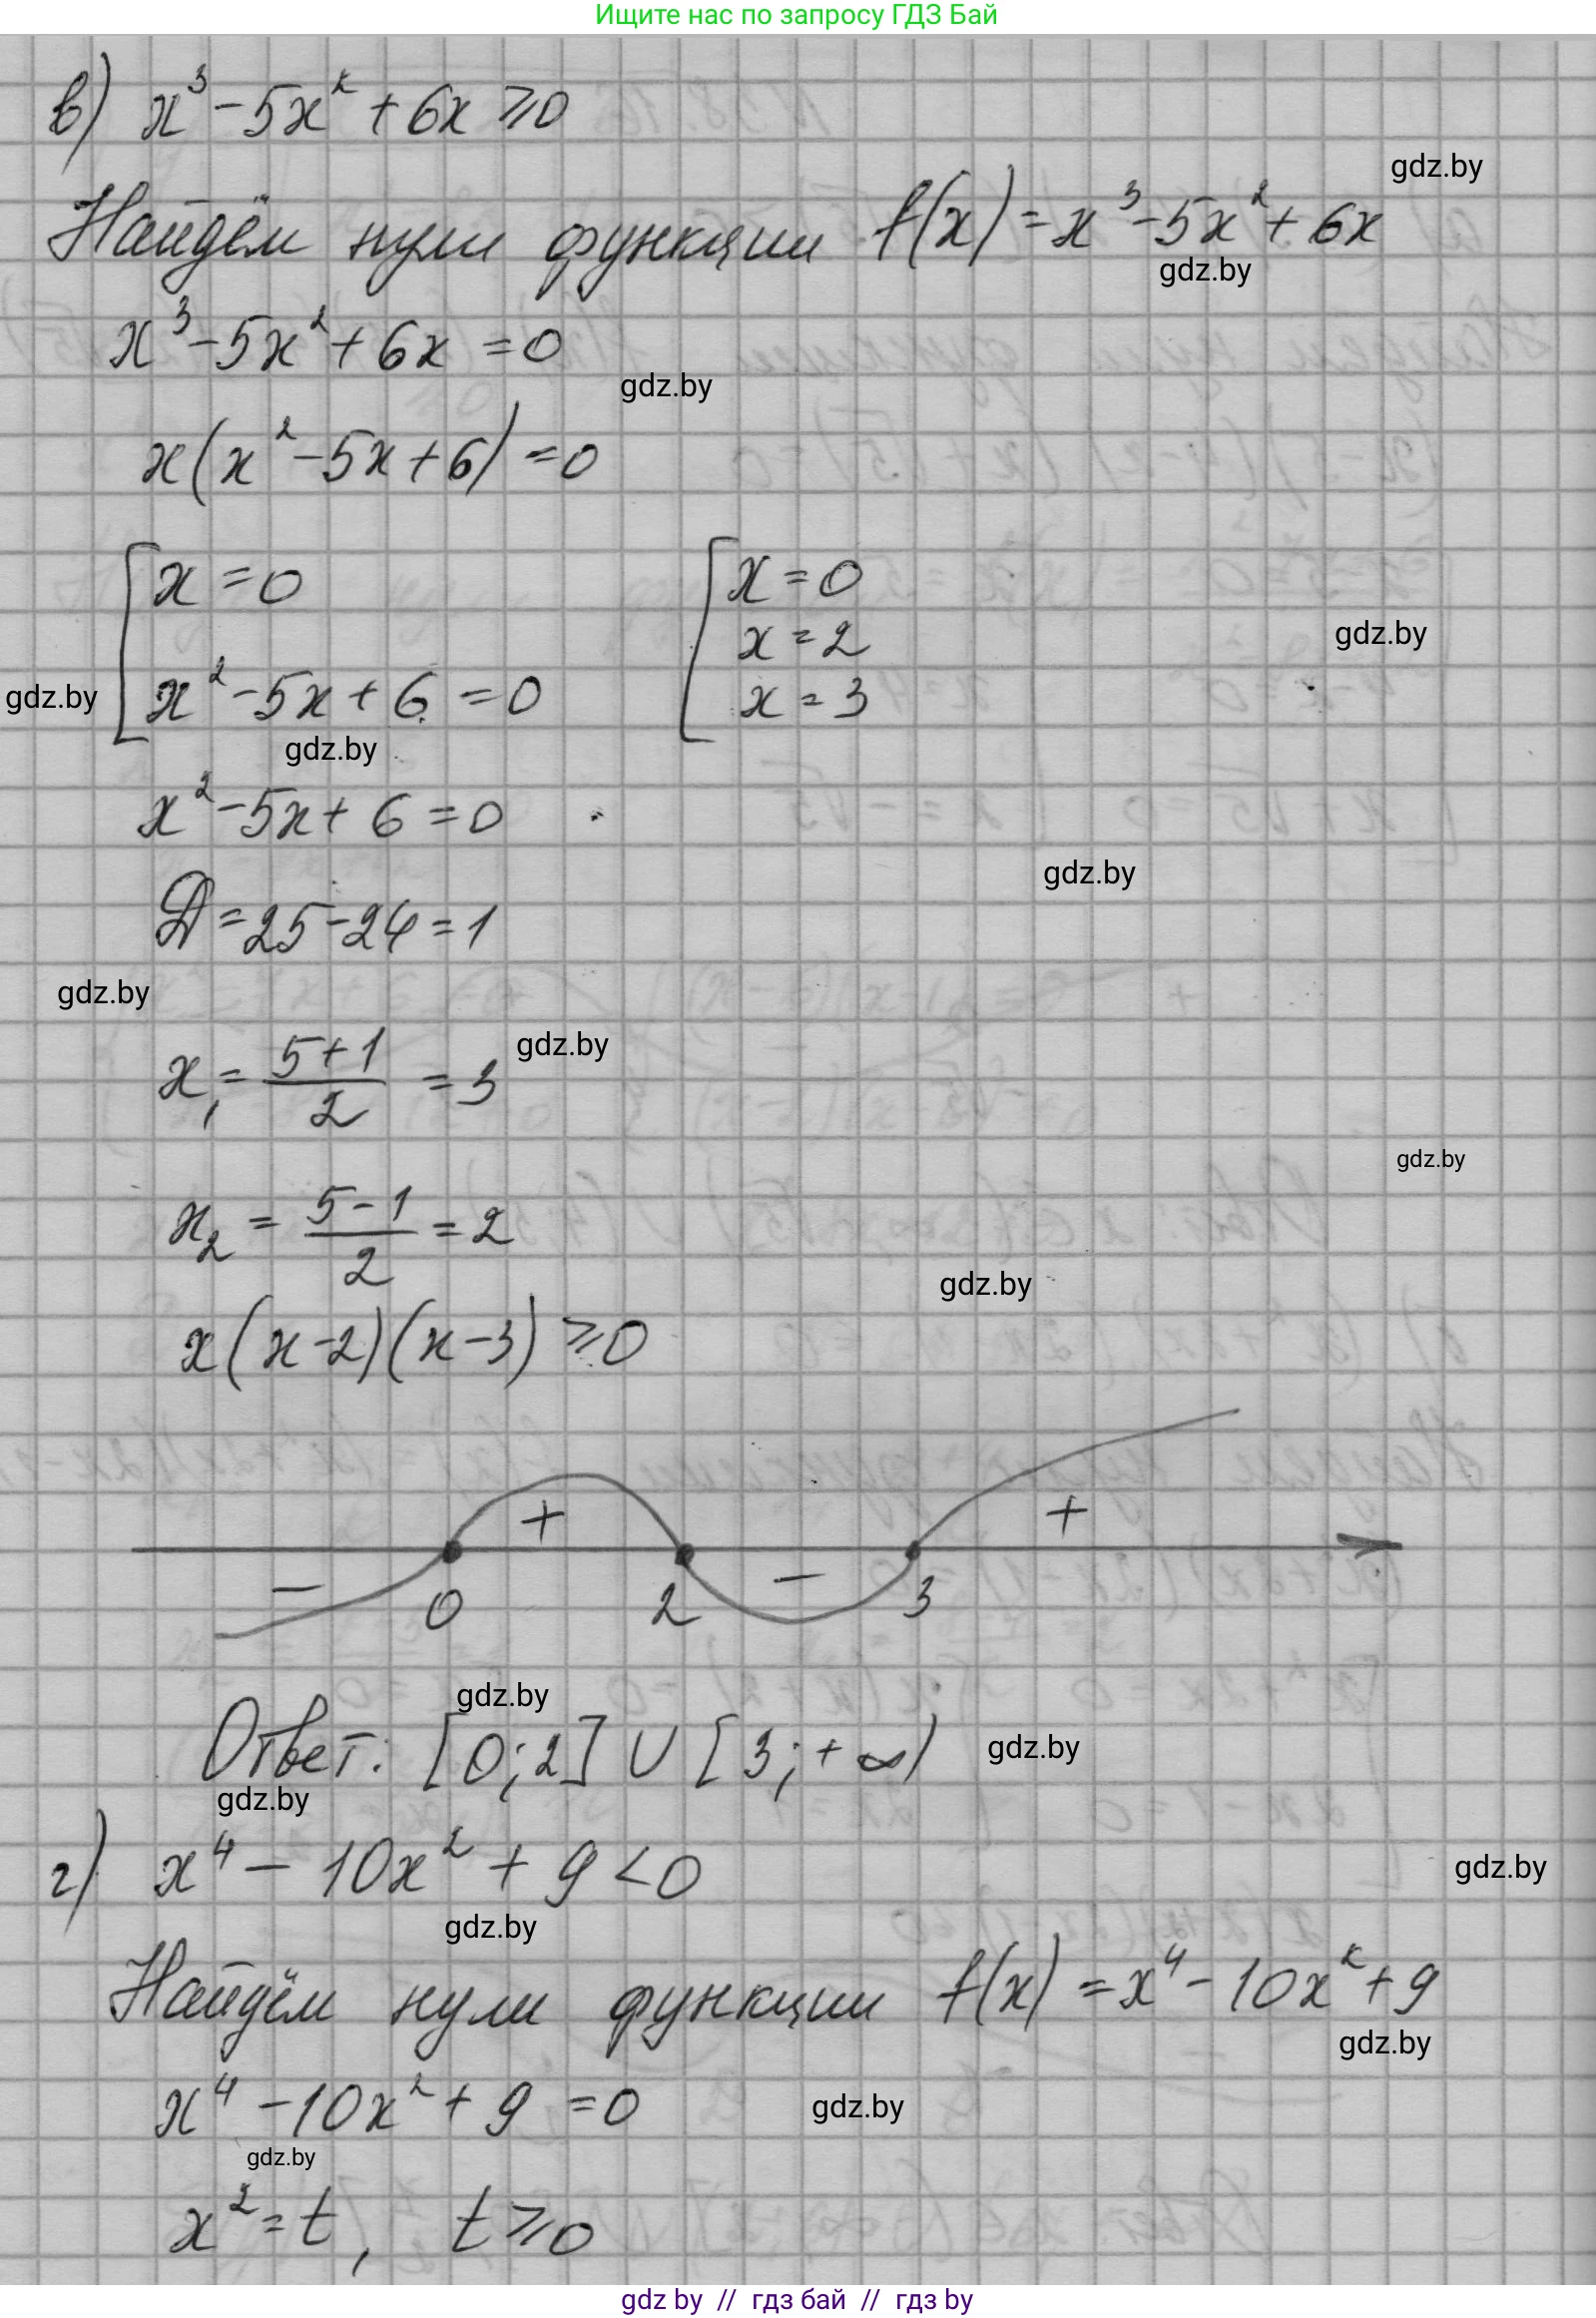 Ищите нас по запросу ГДЗ Бай
в) x³ - 5x² + 6x ⩾ 0
gdz.by
Найдём нули функции f(x) = x³ - 5x² + 6x
gdz.by
x³ - 5x² + 6x = 0
gdz.by
x(x² - 5x + 6) = 0
[x = 0 [x = 0
x = 2
gdz.by
x² - 5x + 6 = 0 x = 3
gdz.by
gdz.by
x² - 5x + 6 = 0
gdz.by
D = 25 - 24 = 1
gdz.by
x₁ = (5 + 1)/2 = 3
gdz.by
gdz.by
x₂ = (5 - 1)/2 = 2
gdz.by
x(x - 2)(x - 3) ⩾ 0
+ +
− −
0 2 3
gdz.by
Ответ: [0; 2] ∪ [3; +∞)
gdz.by
gdz.by
г) x⁴ - 10x² + 9 < 0
gdz.by
gdz.by
Найдём нули функции f(x) = x⁴ - 10x² + 9
gdz.by
x⁴ - 10x² + 9 = 0
gdz.by
gdz.by
x² = t, t ⩾ 0
gdz by // гдз бай // гдз by